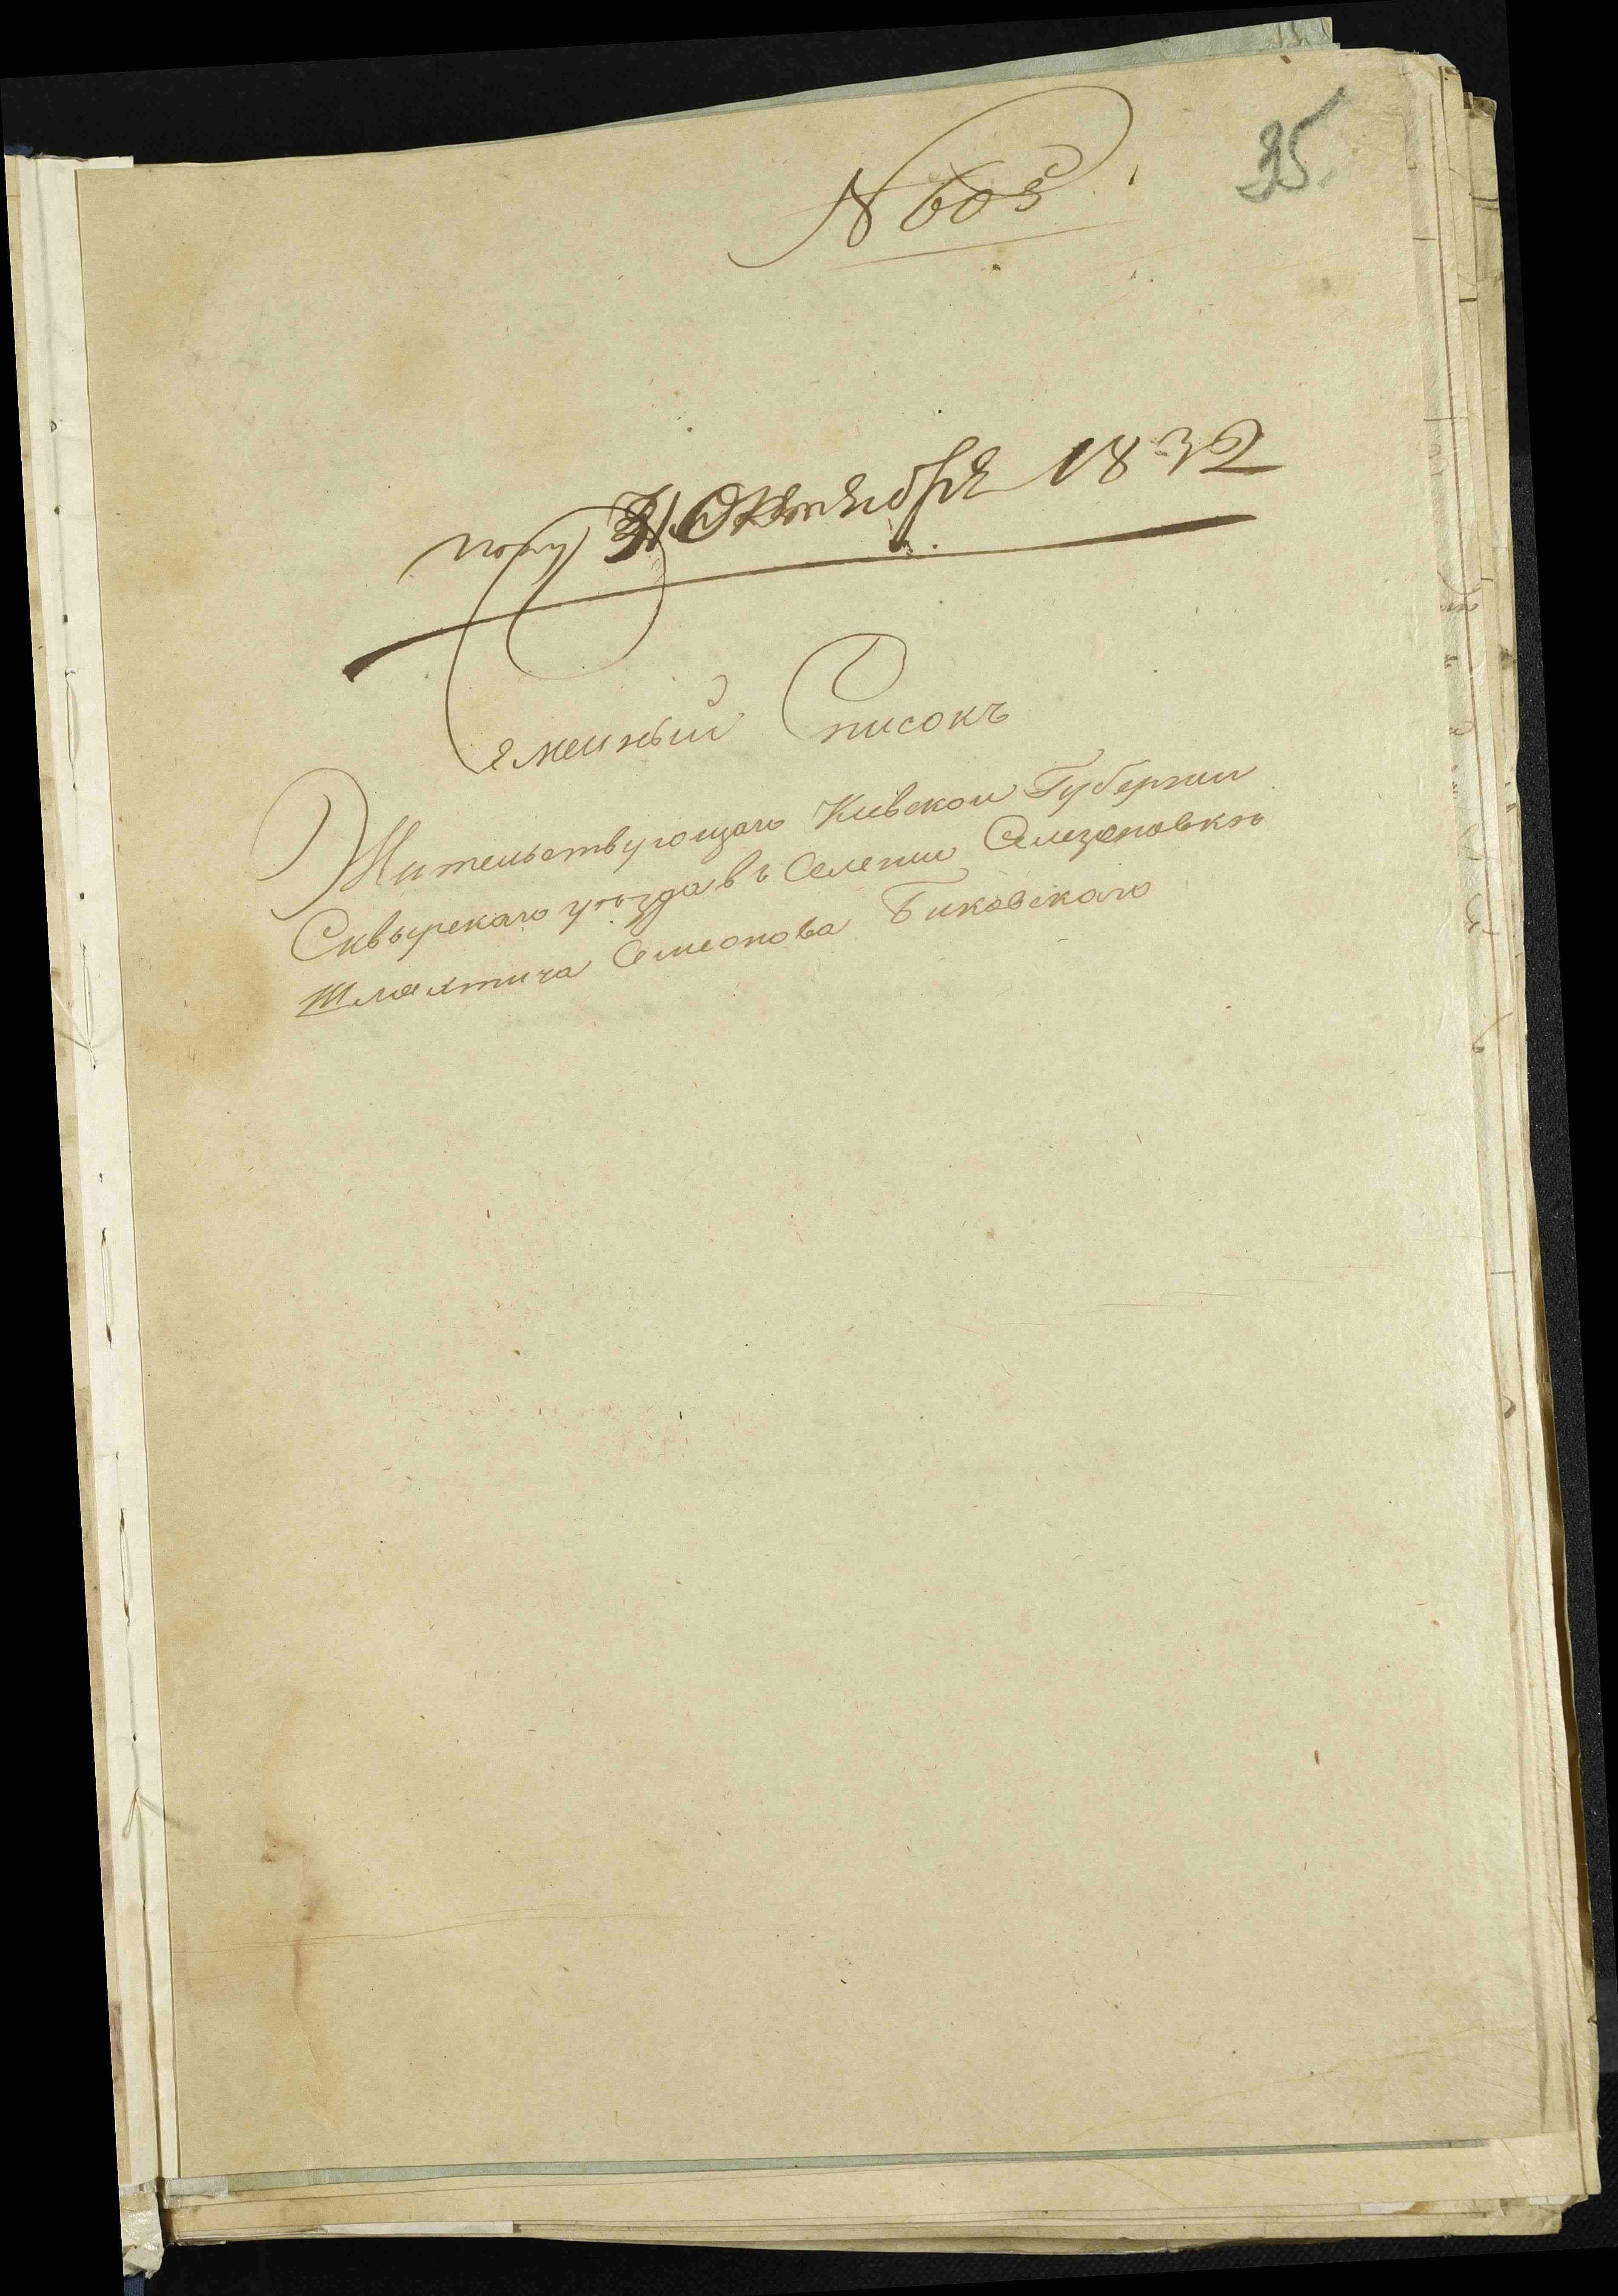 N 603
35.
полу 31 Октября 1832
Семейный Списокъ
Жительствующаго Киевской Губернии
Сквырскаго уезда въ Селении
Шляхтича Симеонова Биковскаго